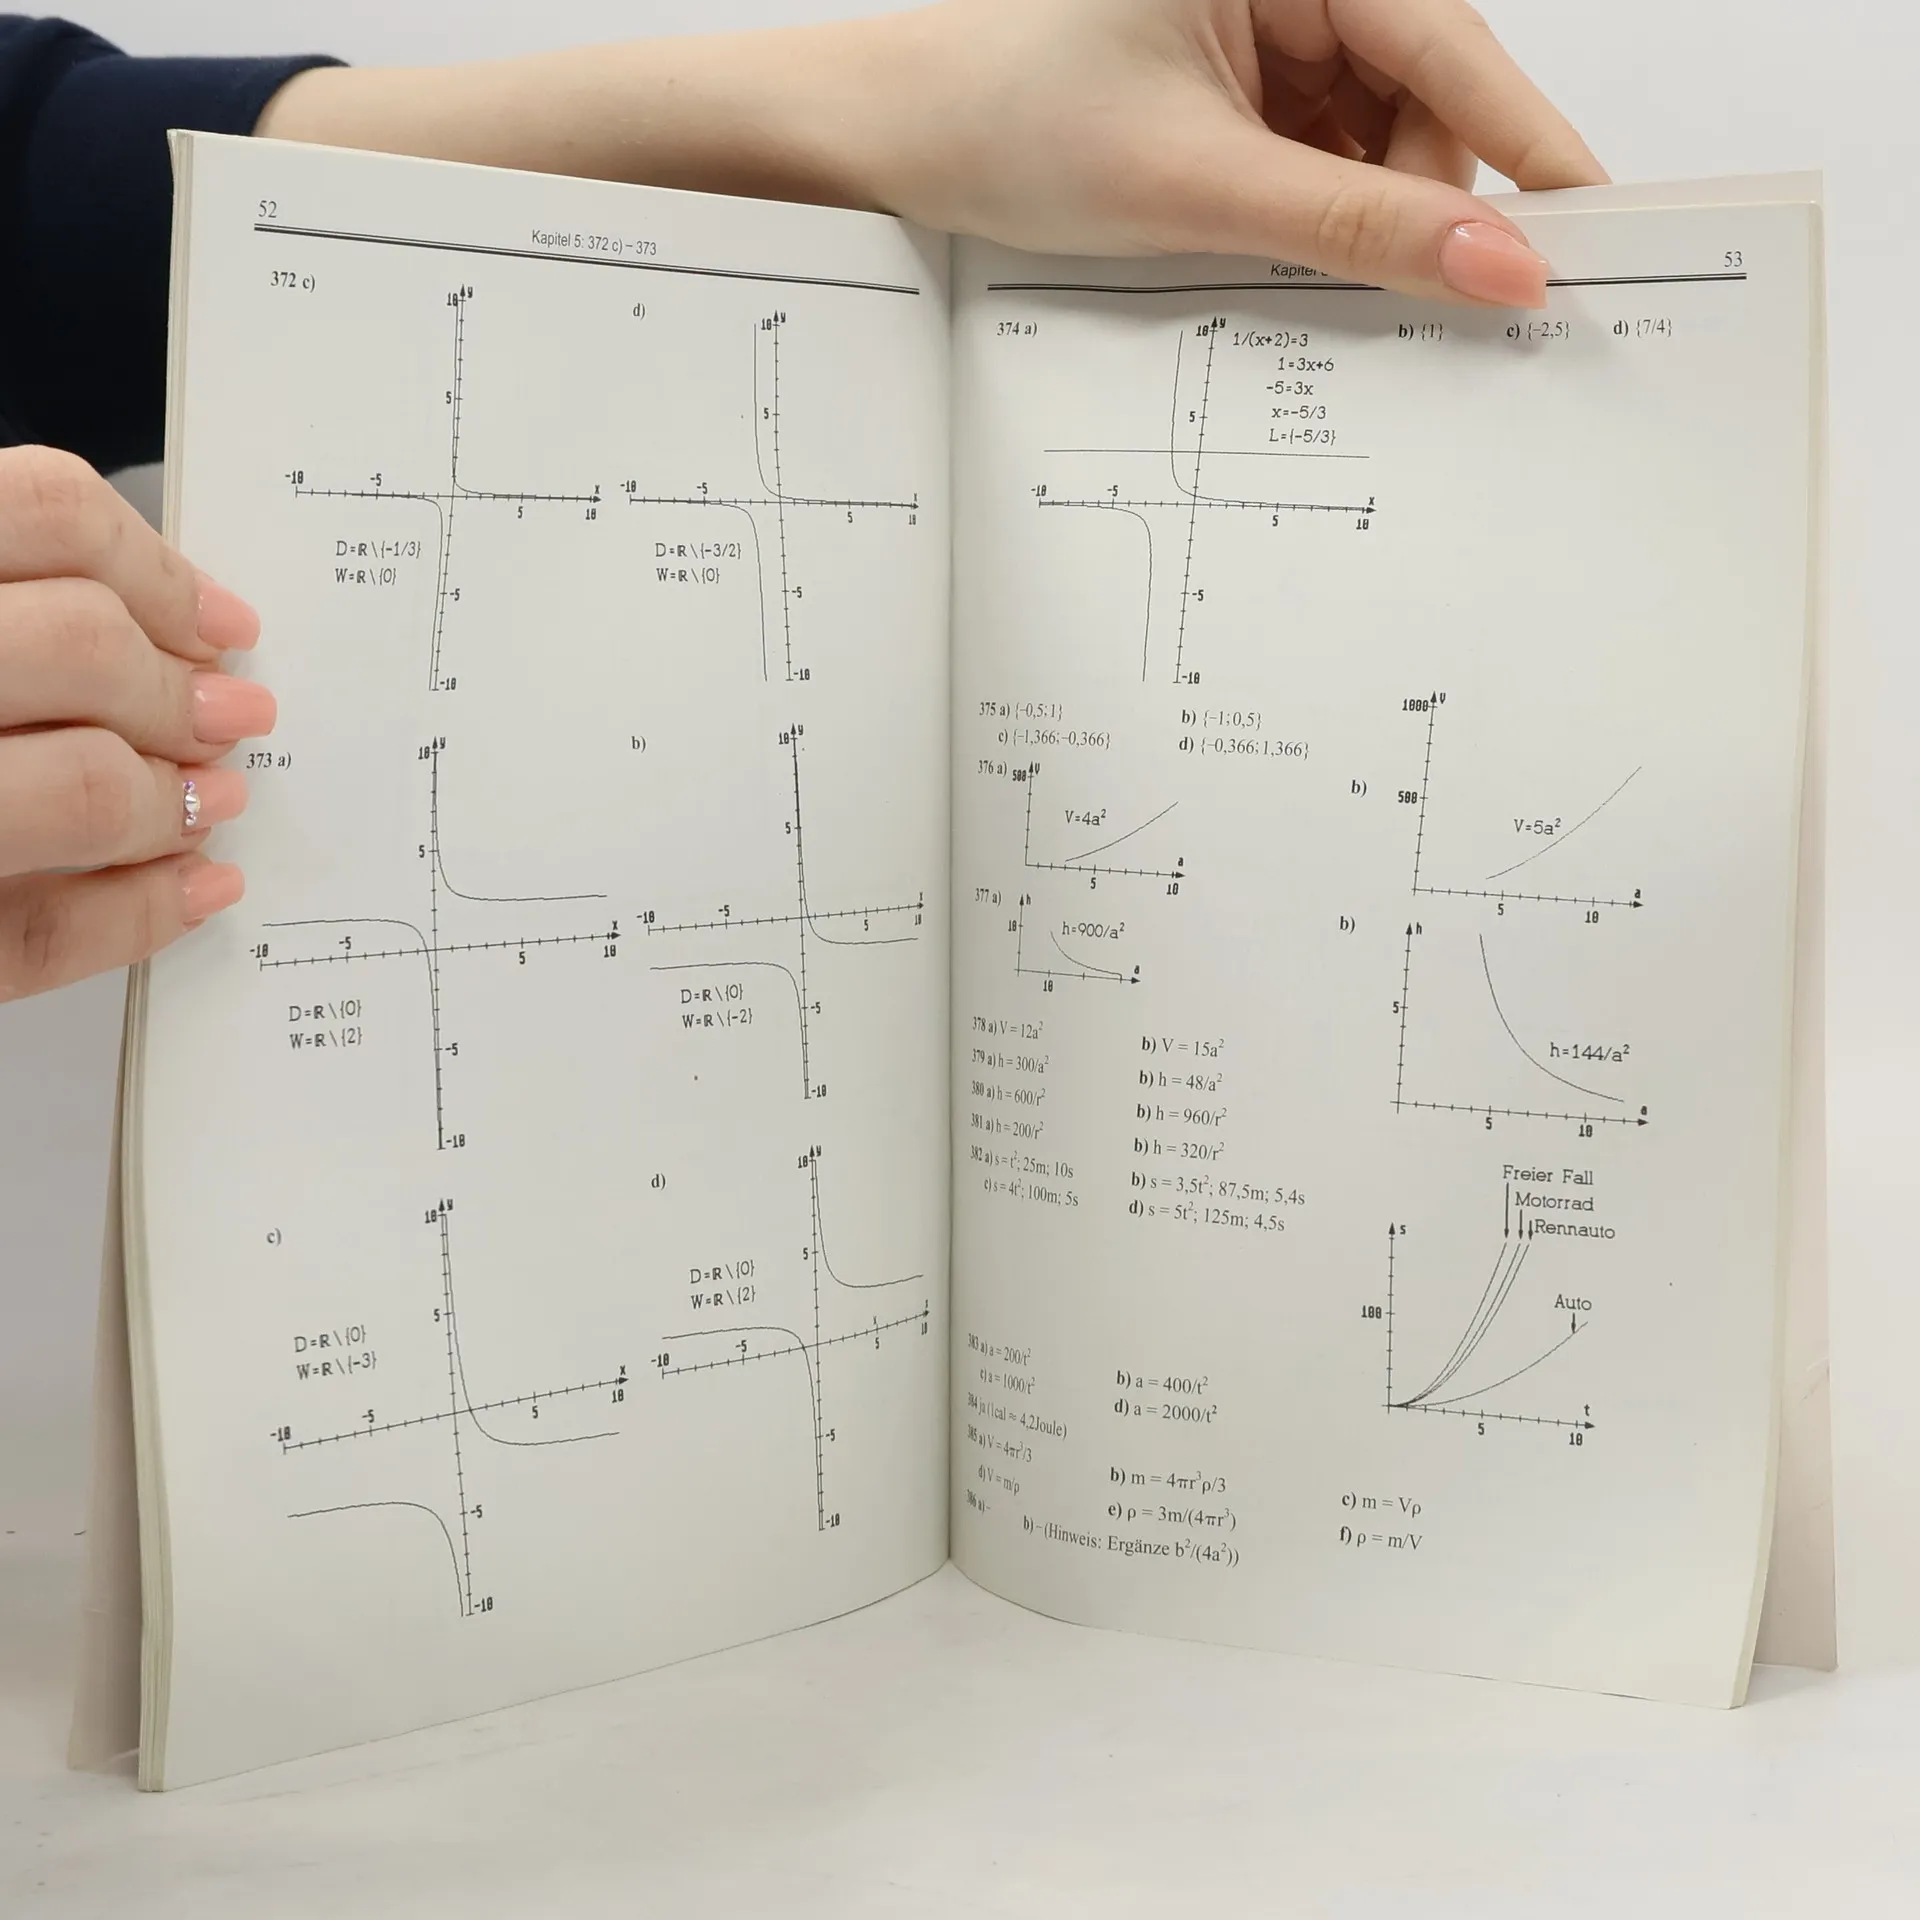 52
Kapitel 5: 372 c) – 373
372 c)
10 y
5
-10 -5 x
5 10
D=ℝ\{-1/3}
W=ℝ\{0}
-5
-10
d)
10 y
5
-10 -5 x
5 10
D=ℝ\{-3/2}
W=ℝ\{0}
-5
-10
373 a)
10 y
5
-10 -5 x
5 10
D=ℝ\{0}
W=ℝ\{2}
-5
-10
b)
10 y
5
-10 -5 x
5 10
D=ℝ\{0}
W=ℝ\{-2}
-5
-10
c)
10 y
5
D=ℝ\{0}
W=ℝ\{-3}
-10 -5 x
5 10
-5
-10
d)
10 y
5
D=ℝ\{0}
W=ℝ\{2}
-10 -5 x
5 10
-5
-10
Kapitel
53
374 a)
10 y
1/(x+2)=3
1=3x+6
-5=3x
x=-5/3
L={-5/3}
5
-10 -5 x
5 10
-5
-10
b) {1} c) {–2,5} d) {7/4}
375 a) {–0,5;1} b) {–1;0,5}
c) {–1,366;–0,366} d) {–0,366;1,366}
376 a) 500 V
V=4a²
a
5 10
b)
1000 V
500
V=5a²
a
5 10
377 a) h
10
h=900/a²
a
10
b)
h
5
h=144/a²
a
5 10
378 a) V = 12a² b) V = 15a²
379 a) h = 300/a² b) h = 48/a²
380 a) h = 600/r² b) h = 960/r²
381 a) h = 200/r² b) h = 320/r²
382 a) s = t²; 25m; 10s b) s = 3,5t²; 87,5m; 5,4s
c) s = 4t²; 100m; 5s d) s = 5t²; 125m; 4,5s
Freier Fall
Motorrad
Rennauto
s
Auto
100
t
5 10
383 a) a = 200/t² b) a = 400/t²
c) a = 1000/t² d) a = 2000/t²
384 ja (1cal ≈ 4,2Joule)
385 a) V = 4πr³/3 b) m = 4πr³ρ/3 c) m = Vρ
d) V = m/ρ e) ρ = 3m/(4πr³) f) ρ = m/V
386 a) –
b) – (Hinweis: Ergänze b²/(4a²))